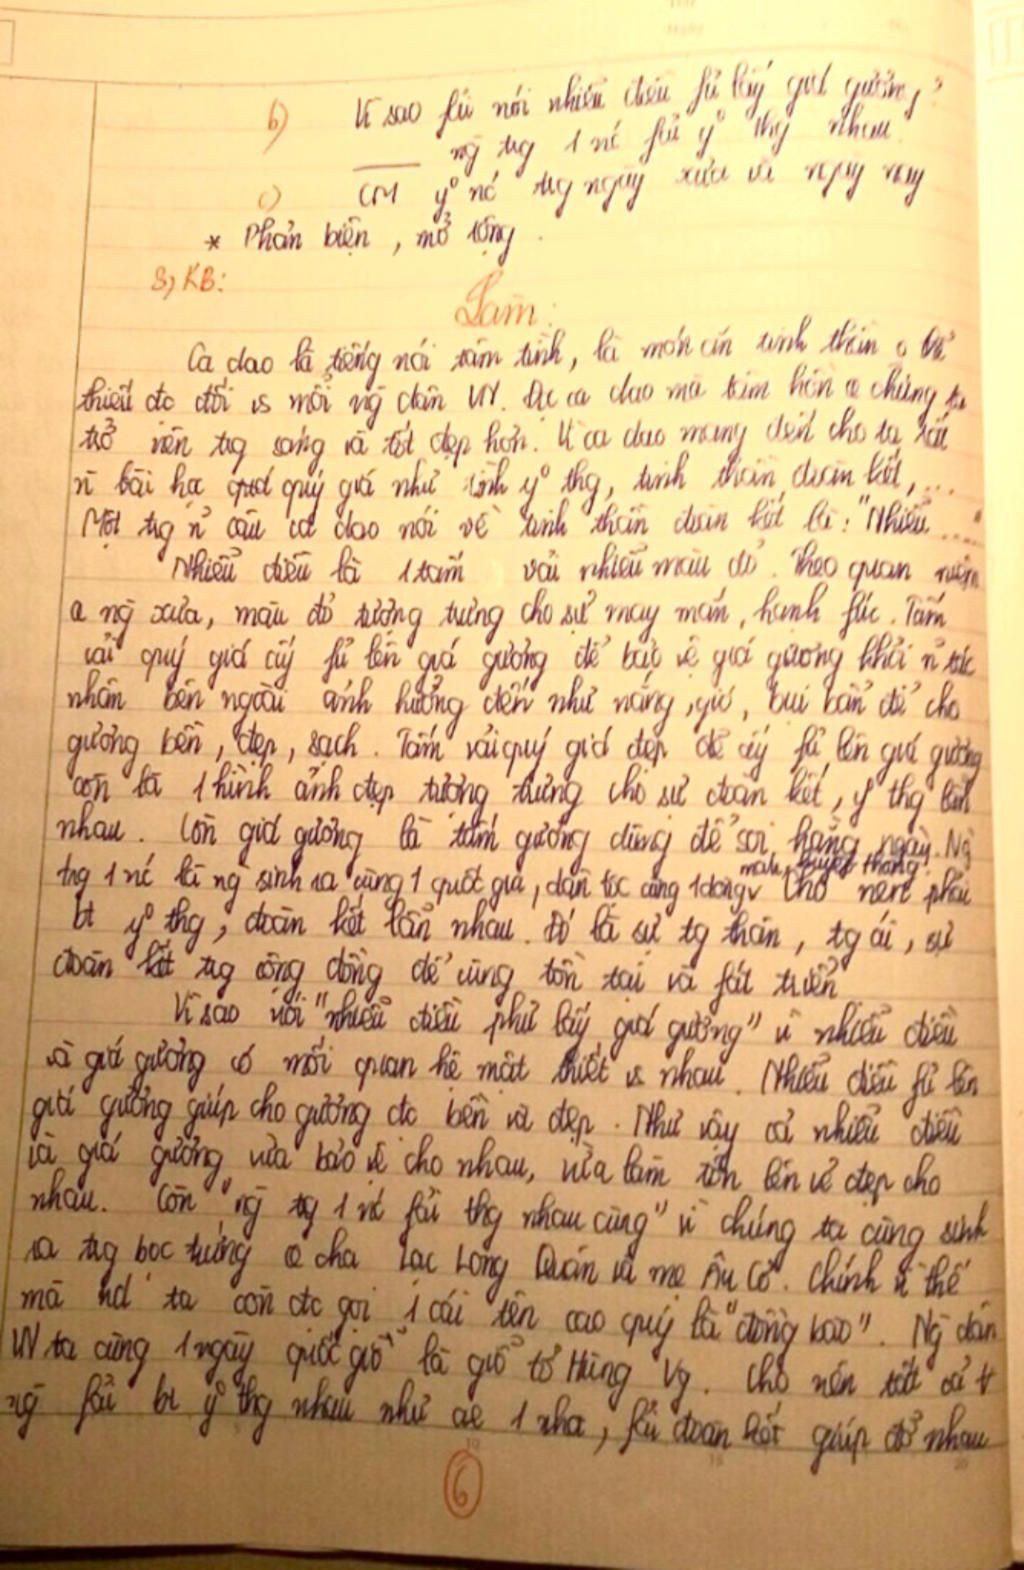 b) Vì sao fải nói nhiễu điều fủ lấy giá gương?
____ ng̃ trg 1 nc fải yº thg nhau.
c) CM yº nc trg ngày xưa và ngày nay
* Phản biện, mở rộng.
3) KB:
Làm:
Ca dao là tiếng nói tâm tình, là món ăn tinh thần o thể
thiếu đc đối vs mỗi ng̃ dân VN. Đọc ca dao mà tâm hồn @ chúng ta
trở nên trg sáng và tốt đẹp hơn. Vì ca dao mang đến cho ta rất
n̉ bài học quá quý giá như tình yº thg, tinh thần đoàn kết, ...
Một trg n̉ câu ca dao nói về tinh thần đoàn kết là: "Nhiễu ....."
Nhiễu điều là 1 tấm vải nhiễu màu đỏ. Theo quan niệm
@ ng̃ xưa, màu đỏ tượng trưng cho sự may mắn, hạnh fúc. Tấm
vải quý giá ấy fủ lên giá gương để bảo vệ giá gương khỏi n̉ tác
nhân bên ngoài ảnh hưởng đến như nắng, gió, bụi bẩn để cho
gương bền, đẹp, sạch. Tấm vải quý giá đẹp đẽ ấy fủ lên giá gương
còn là 1 hình ảnh đẹp tượng trưng cho sự đoàn kết, yº thg lẫn
nhau. Còn giá gương là tấm gương dùng để soi hằng ngày. Ng̃
trg 1 nc là ng̃ sinh ra cùng 1 quốc gia, dân tộc cùng 1 dòng máu, huyết thống. Cho nên phải
bt yº thg, đoàn kết lẫn nhau. Đó là sự tg thân, tg ái, sự
đoàn kết trg cộng đồng để cùng tồn tại và fát triển
Vì sao nói "nhiễu điều phủ lấy giá gương" vì nhiễu điều
và giá gương có mối quan hệ mật thiết vs nhau. Nhiễu điều fủ lên
giá gương giúp cho gương đc bền và đẹp. Như vậy cả nhiễu điều
và giá gương vừa bảo vệ cho nhau, vừa làm tôn lên vẻ đẹp cho
nhau. Còn "ng̃ trg 1 nc fải thg nhau cùng" vì chúng ta cùng sinh
ra trg bọc trứng @ cha Lạc Long Quân và mẹ Âu Cơ. Chính vì thế
mà nd ta còn đc gọi 1 cái tên cao quý là "đồng bào". Ng̃ dân
VN ta cùng 1 ngày quốc giỗ là giỗ tổ Hùng Vg. Cho nên tất cả
ng̃ fải bt yº thg nhau như ae 1 nhà, fải đoàn kết giúp đỡ nhau
6